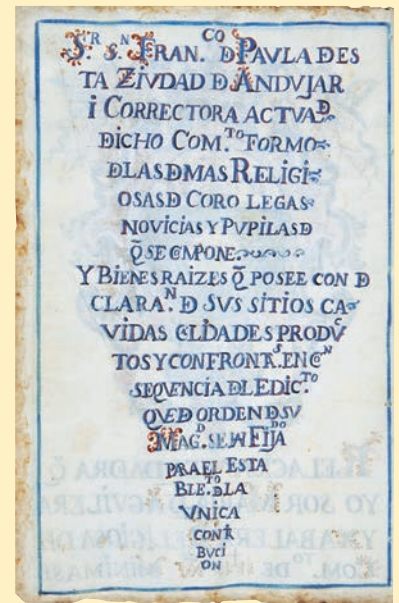 S.ʳ S.ⁿ FRAN.ᶜᴼ D PAVLA DES
TA ZIVDAD D ANDVJAR
i CORRECTORA ACTVAD
DICHO COM.ᵀᴼ FORMO
DLAS DMAS RELIGI
OSAS D CORO LEGAS
NOVICIAS Y PVPILAS D
Q̃ SE CMPONE
Y BIENES RAIZES Q̃ POSEE CON D
CLARA.ᴺ D SVS SITIOS CA
VIDAS CLIDADES PRODV̂
TOS Y CONFRONTA.ˢ EN Cᴺ
SEQVENCIA DL EDIC.ᵀᴼ
QVE D ORDEN D SV
MAG.ᴰ SE HA FIJAᴰᴼ
PARA EL ESTA
BLE.ᵀᴼ D LA
VNICA
CONTR
BVCI
ON